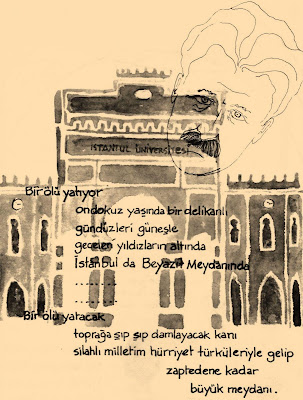 İSTANBUL ÜNİVERSİTESİ
Bir ölü yatıyor
ondokuz yaşında bir delikanlı
gündüzleri güneşle
geceleri yıldızların altında
İstanbul da Beyazıt Meydanında
.......
.......
Bir ölü yatacak
toprağa şıp şıp damlayacak kanı
silahlı milletim hürriyet türküleriyle gelip
zaptedene kadar
büyük meydanı.